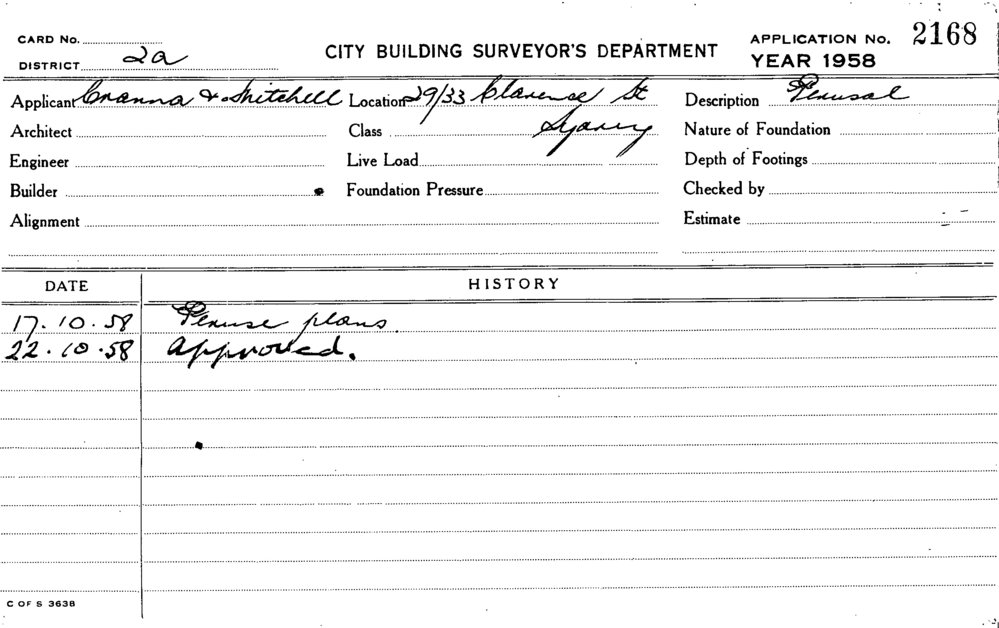 CARD No.
DISTRICT 2a
CITY BUILDING SURVEYOR'S DEPARTMENT
APPLICATION No. 2168
YEAR 1958
Applicant Cranna & Mitchell Location 29/33 Clarence St Description Perusal
Architect Class Sydney Nature of Foundation
Engineer Live Load Depth of Footings
Builder Foundation Pressure Checked by
Alignment Estimate
DATE HISTORY
17.10.58 Peruse plans.
22.10.58 Approved.
C OF S 3638